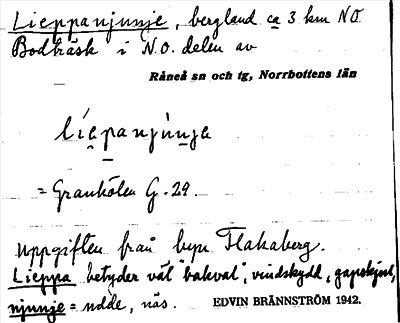 Lieppanjunje, bergland ca 3 km N.O.
Bodträsk i N.O. delen av
Råneå sn och tg, Norrbottens län
líepanjùnje
= Grankölen G. 29.
Uppgiften från byn Flakaberg.
Lieppa betyder väl "bakval", vindskydd,
njunje = udde, näs. EDVIN BRÄNNSTRÖM 1942.